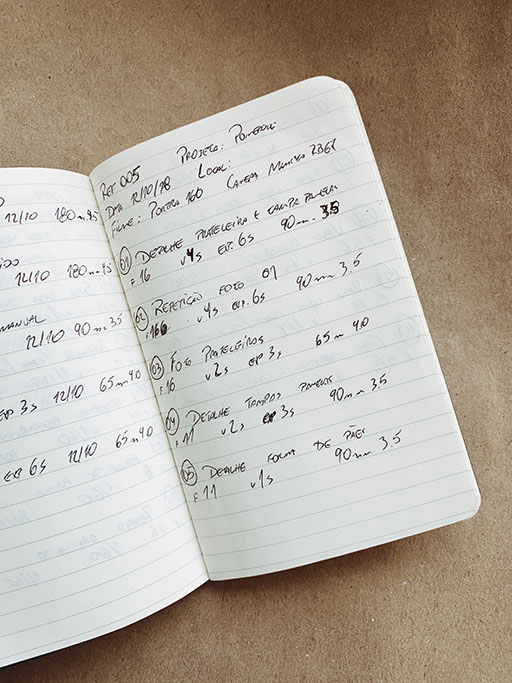 12/10 180mm 4.5
12/10 180mm 4.5
MANUAL
12/10 90mm 3.5
EXP 3s 12/10 65mm 4.0
EXP 6s 12/10 65mm 4.0
REF 005 PROJETO:
DATA 12/10/18 LOCAL:
FILME: PORTRA 160 CAMERA MAMIYA
01 DETALHE PRATELEIRA E
F 16 v4s EXP. 6s 90mm 3.5
02 REPETIÇÃO FOTO 01
F 16 v4s EXP. 6s 90mm 3.5
03 FOTO PRATELEIROS
F 16 v2s EXP 3s 65mm 4.0
04 DETALHE TAMPAS PANELAS
F 11 v2s EXP 3s 90mm 3.5
05 DETALHE FORMA DE PÃES
F 11 v1s 90mm 3.5